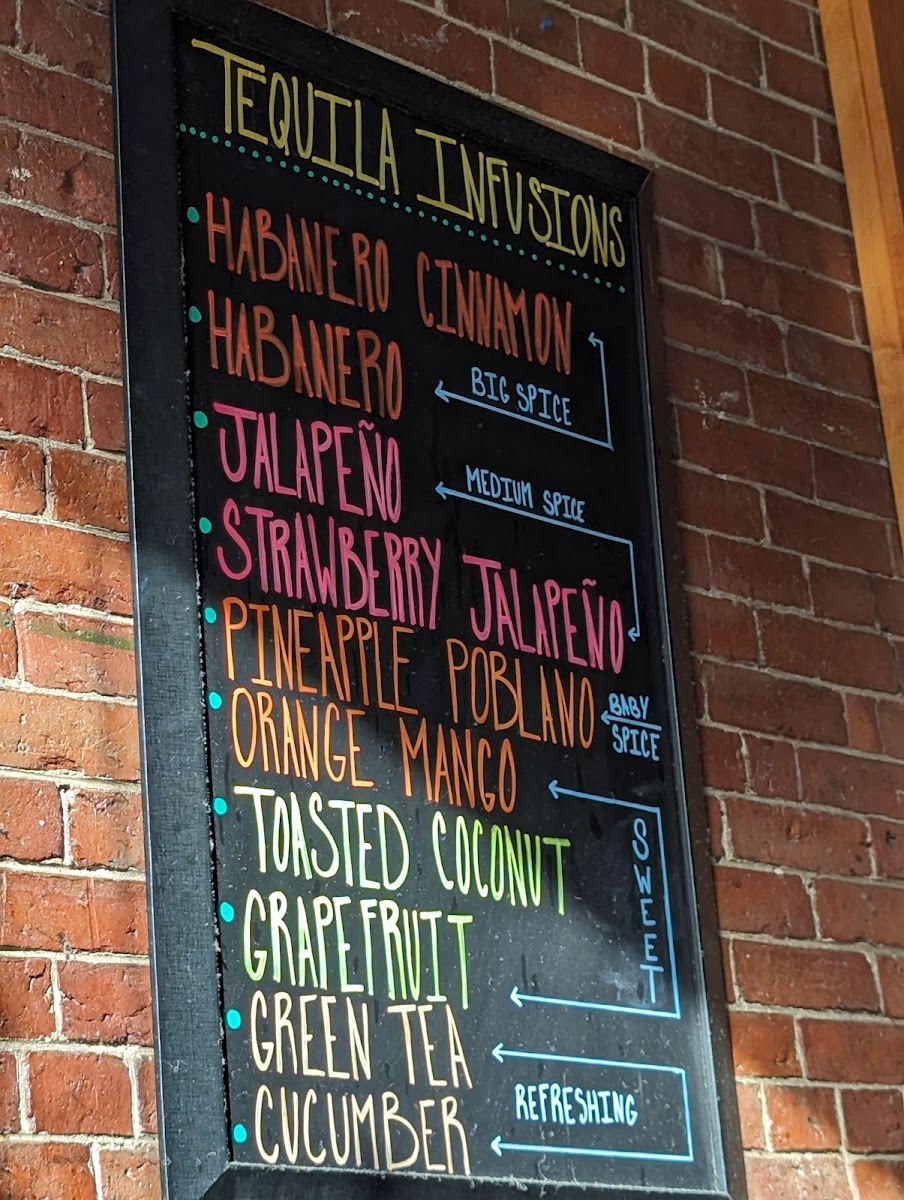 TEQUILA INFUSIONS
HABANERO CINNAMON
HABANERO
BIG SPICE
JALAPEÑO
MEDIUM SPICE
STRAWBERRY JALAPEÑO
PINEAPPLE POBLANO
BABY
SPICE
ORANGE MANGO
TOASTED COCONUT
SWEET
GRAPEFRUIT
GREEN TEA
REFRESHING
CUCUMBER